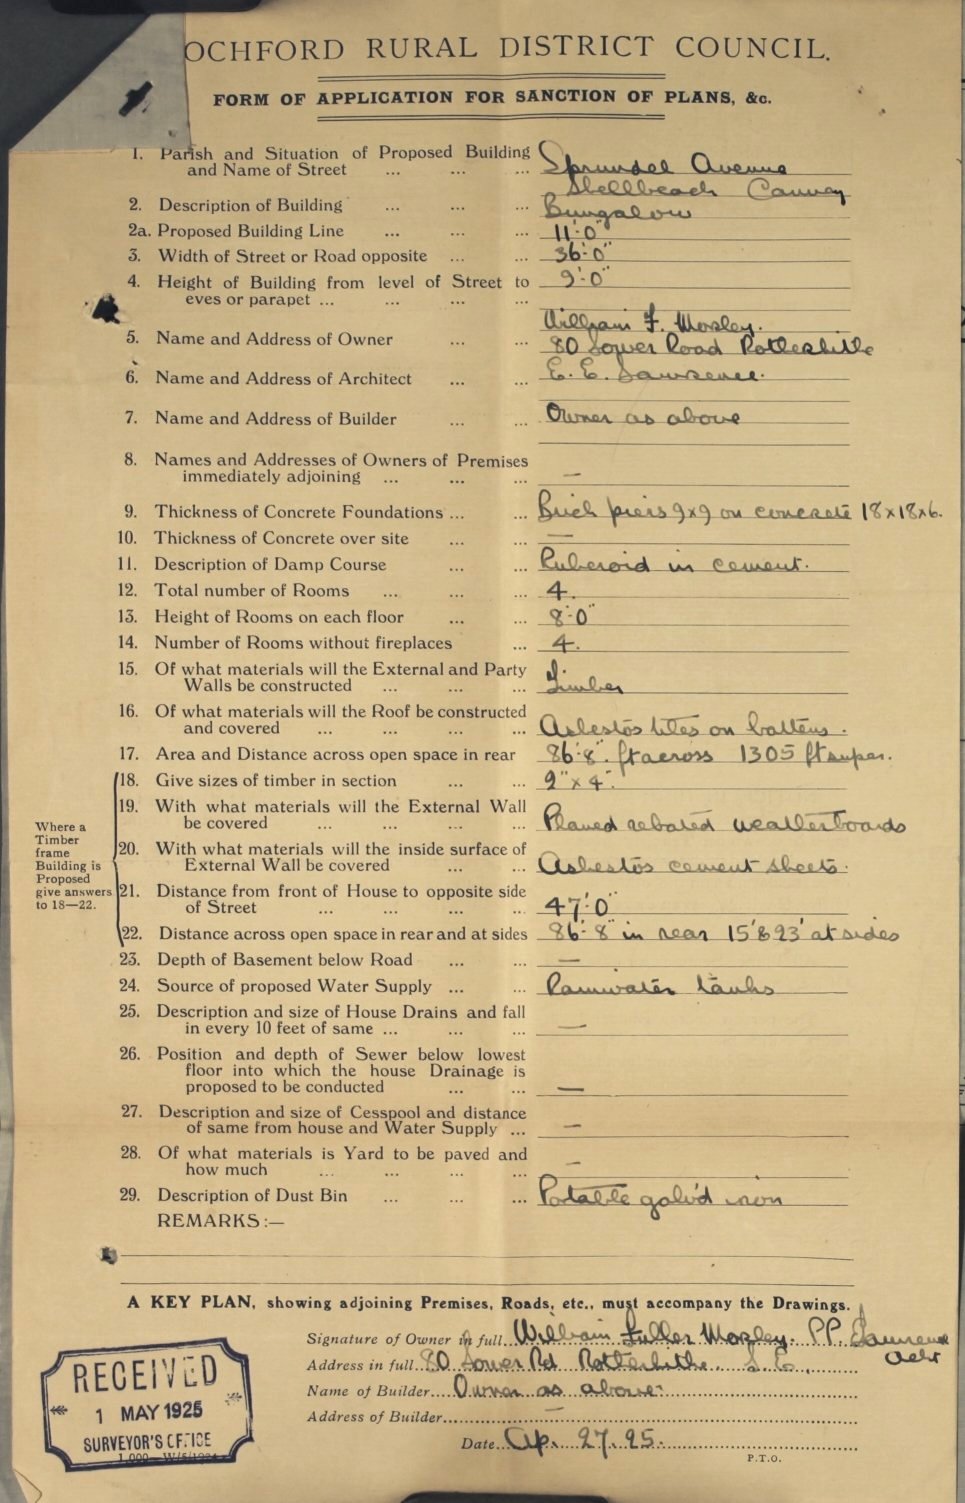 OCHFORD RURAL DISTRICT COUNCIL.
FORM OF APPLICATION FOR SANCTION OF PLANS, &c.
1. Parish and Situation of Proposed Building
and Name of Street ... ... ... Sprundel Avenue
Shellbeach Canvey
2. Description of Building ... ... ... Bungalow
2a. Proposed Building Line ... ... ... 11'-0"
3. Width of Street or Road opposite ... ... 36'-0"
4. Height of Building from level of Street to
eves or parapet ... ... ... ... 9'-0"
William F. Morley.
5. Name and Address of Owner ... ... 80 Lower Road Rotherhithe
6. Name and Address of Architect ... ... E. E. Lawrence.
7. Name and Address of Builder ... ... Owner as above
8. Names and Addresses of Owners of Premises
immediately adjoining ... ... ... —
9. Thickness of Concrete Foundations ... ... Brick piers 9x9 on concrete 18x18x6.
10. Thickness of Concrete over site ... ... —
11. Description of Damp Course ... ... Ruberoid in cement.
12. Total number of Rooms ... ... ... 4.
13. Height of Rooms on each floor ... ... 8'-0"
14. Number of Rooms without fireplaces ... 4.
15. Of what materials will the External and Party
Walls be constructed ... ... ... Timber
16. Of what materials will the Roof be constructed
and covered ... ... ... ... Asbestos tiles on battens.
17. Area and Distance across open space in rear 86'-8". ft across 1305 ft super.
18. Give sizes of timber in section ... ... 2" x 4".
19. With what materials will the External Wall
be covered ... ... ... ... Planed rebated weatherboards
Where a
Timber
frame
Building is
Proposed
give answers
to 18—22.
20. With what materials will the inside surface of
External Wall be covered ... ... Asbestos cement sheets.
21. Distance from front of House to opposite side
of Street ... ... ... ... 47'-0"
22. Distance across open space in rear and at sides 86'-8" in rear 15' & 23' at sides
23. Depth of Basement below Road ... ... —
24. Source of proposed Water Supply ... ... Rainwater tanks
25. Description and size of House Drains and fall
in every 10 feet of same ... ... ... —
26. Position and depth of Sewer below lowest
floor into which the house Drainage is
proposed to be conducted ... ... —
27. Description and size of Cesspool and distance
of same from house and Water Supply ... —
28. Of what materials is Yard to be paved and
how much ... ... ... ... —
29. Description of Dust Bin ... ... ... Portable galv'd iron
REMARKS:—
A KEY PLAN, showing adjoining Premises, Roads, etc., must accompany the Drawings.
Signature of Owner in full William Fuller Morley. PP. E Lawrence
Archt
Address in full 80 Lower Rd Rotherhithe. S.E.
Name of Builder Owner as above.
Address of Builder —
Date Ap. 27. 25.
P.T.O.
RECEIVED
1 MAY 1925
SURVEYOR'S OFFICE